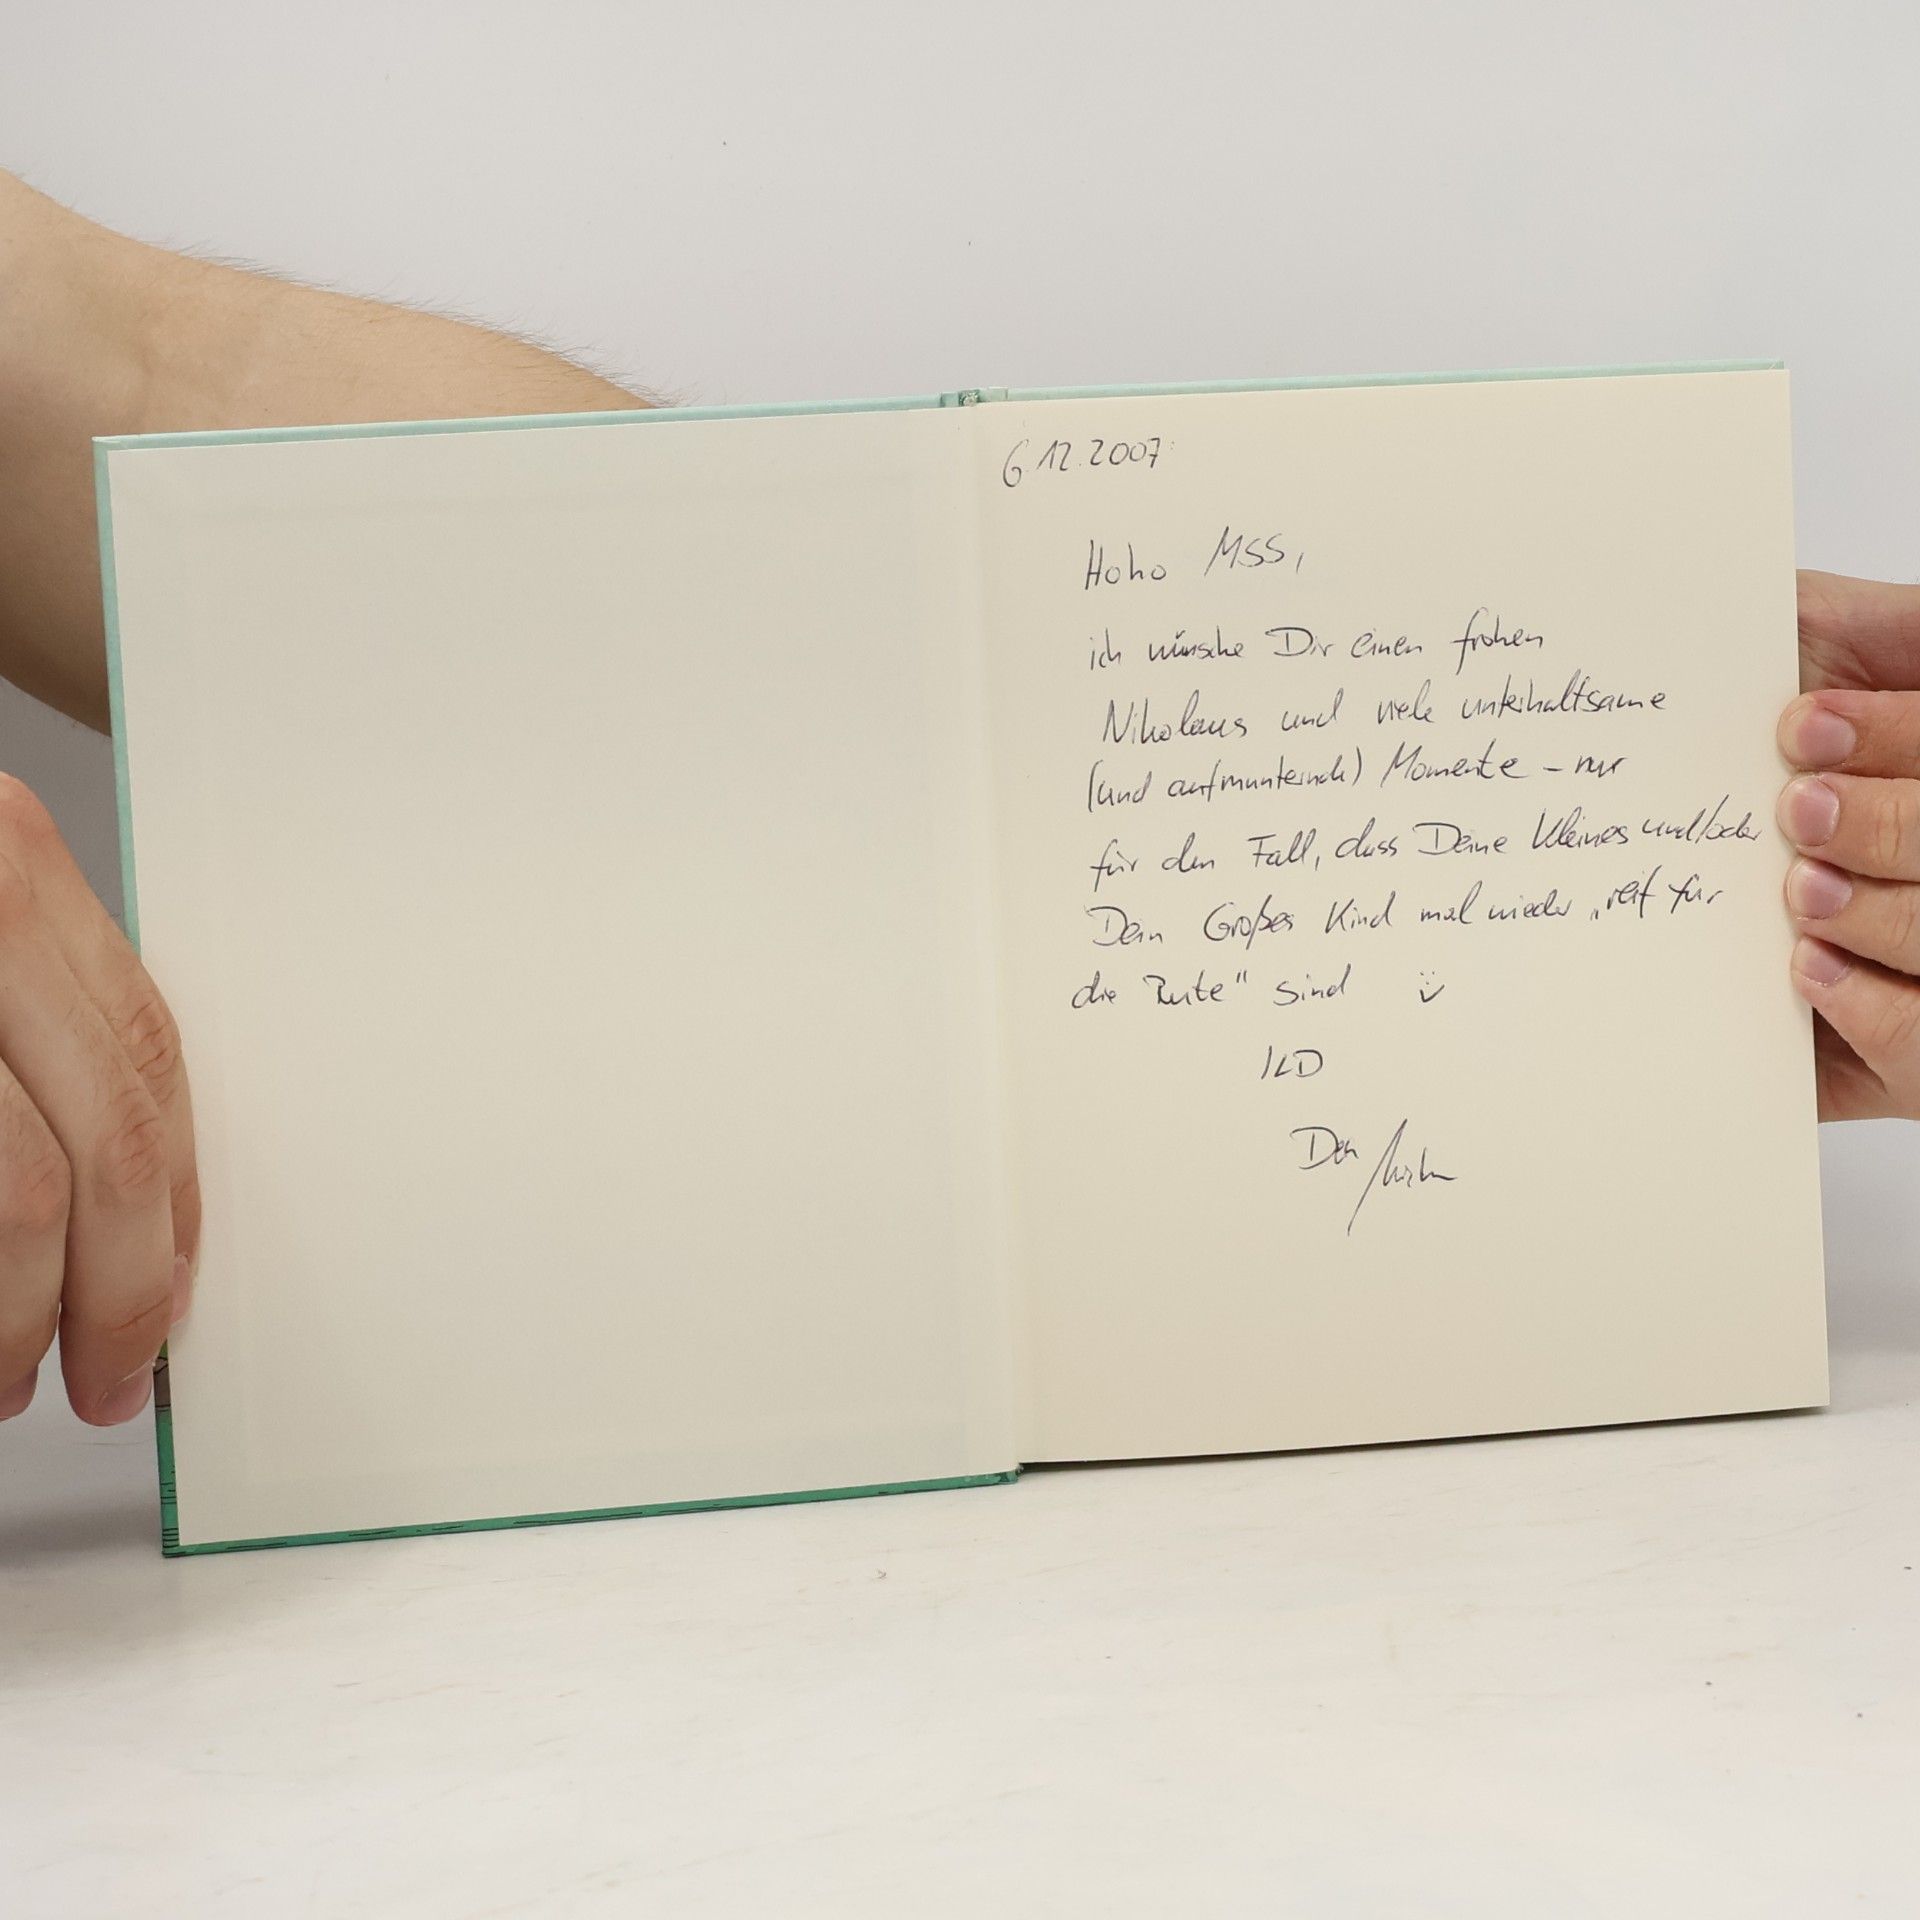 6.12.2007
Hoho MSS,
ich wünsche Dir einen frohen
Nikolaus und viele unterhaltsame
(und aufmunternde) Momente – nur
für den Fall, dass Deine Kleines und/oder
Dein Großes Kind mal wieder „reif für
die Rute" sind
ILD